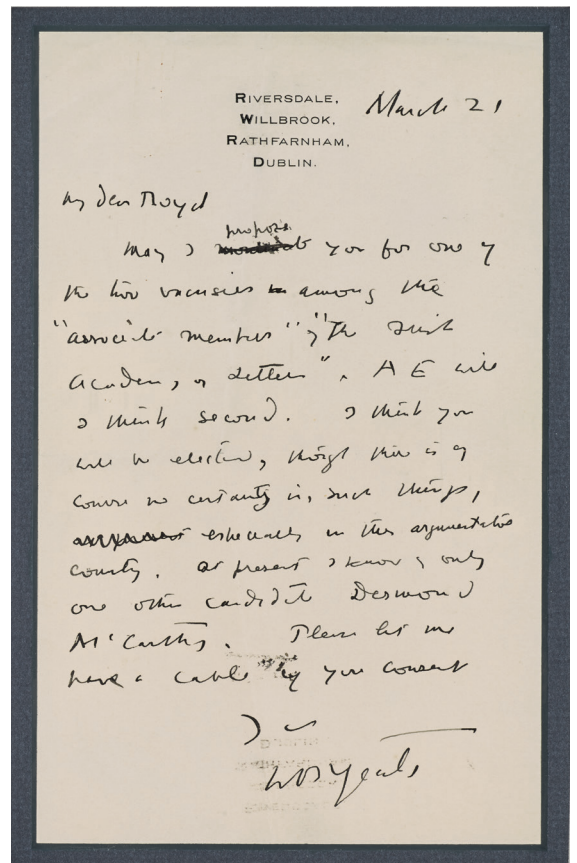 RIVERSDALE,
WILLBROOK,
RATHFARNHAM,
DUBLIN.
March 21
My dear
propose
May I you for one of
the two vacancies among the
"associate members" of "The Irish
Academy of Letters". A E will
I think second. I think you
will be elected, though there is of
course no certainty in such things,
especially in this argumentative
country. At present I know of only
one other candidate Desmond
McCarthy. Please let me
have a cable if you consent
Yrs
WB Yeats